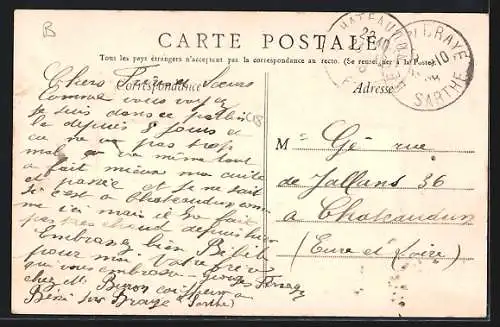 B
CARTE POSTALE
Tous les pays étrangers n'acceptent pas la correspondance au recto. (Se renseigner à la Poste)
Correspondance
Adresse
CHATEAUDUN
BRAYE
SARTHE
Chers Sœurs
Comme vous voyez
Je suis dans ce
depuis 8 jours et
ça ne va pas trop
mal ça va même tout
a fait mieux ma
est passée et Je ne sait
si c'est a Chateaudun comme
me ici mais il ne fait
pas très chaud depuis hier
Embrassez bien Bébé
pour moi Votre frère
qui vous embrasse
chez Mr Buron coiffeur a
Bessé sur Braye (Sarthe)
Mr Gé rue
de Jallans 36
a Chateaudun
(Eure et Loire)